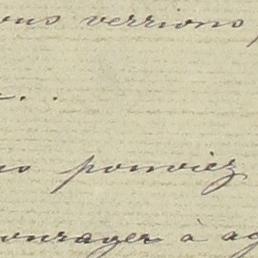 ous verrions,
. .
pouviez
ourager à ag